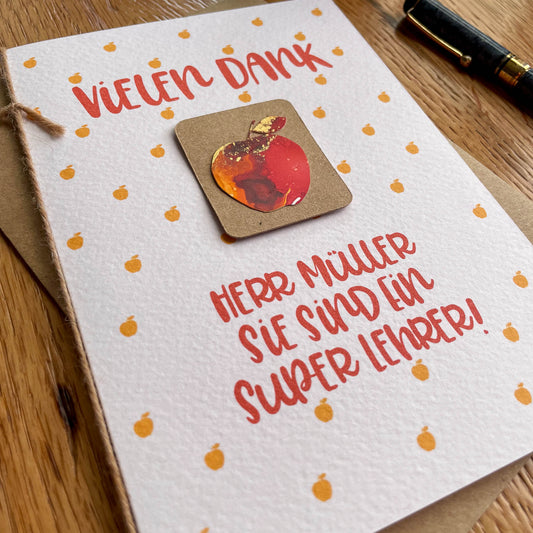 VIELEN DANK
HERR MÜLLER
SIE SIND EIN
SUPER LEHRER!